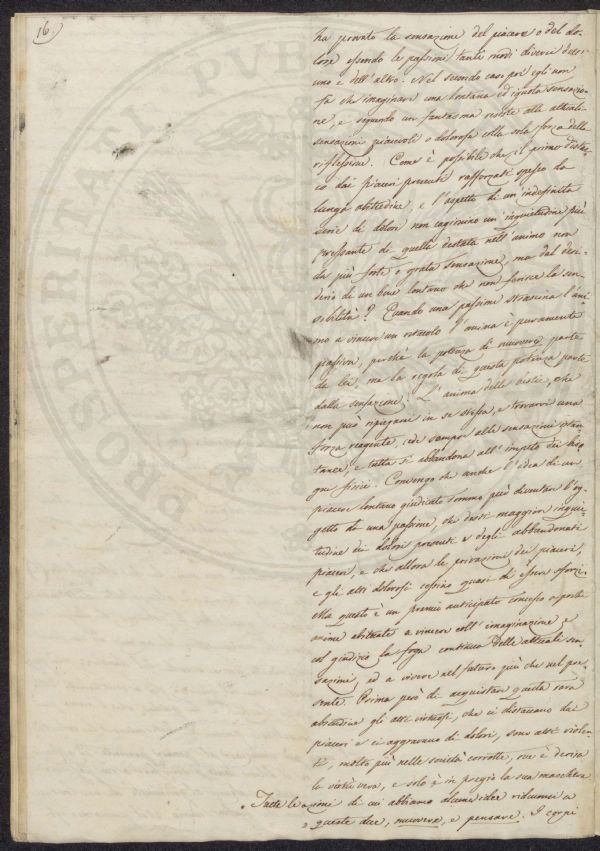 16.
ha provato la sensazione del piacere o del do-
lore essendo le passioni tanti modi diversi dell'
uno e dell'altro. Nel secondo caso poi egli non
fa che imaginare una lontana ed ignota sensazio-
ne, e seguendo un fantasma resiste alle attuali
sensazioni piacevoli o dolorose colla sola forza della
riflessione. Come è possibile che il primo distac-
co dai piaceri presenti rafforzati spesso da
lunga abitudine, e l'aspetto di un'indefinita
serie di dolori non cagionino un'inquietudine più
pressante di quella destata nell'animo non
da più forte o grata sensazione, ma dal desi-
derio di un bene lontano che non ferisce la sen-
sibilità? Quando una passione strascina l'ani-
mo a vincere un ostacolo l'anima è puramente
passiva, perchè la potenza di muovere parte
da lei, ma la regola di questa potenza parte
dalla sensazione. L'anima delle bestie, che
non può ripiegarsi in se stessa, e trovarvi una
forza reagente, cede sempre alle sensazioni
e tutta si abbandona all'impeto dei
fisici. Convengo che anche l'idea di un
piacere lontano giudicato sommo può diventare l'og-
getto di una passione, che desti maggiore inquie-
tudine dei dolori presenti e degli abbandonati
piaceri, e che allora le privazioni dei piaceri,
e gli atti dolorosi cessino quasi di essere sforzi.
Ma questo è un premio anticipato concesso a poche
anime abituate a vincere coll'imaginazione e
col giudizio la foga contraria delle attuali sen-
sazioni, ed a vivere nel futuro più che nel pre-
sente. Prima però di acquistare questa rara
abitudine gli atti virtuosi, che ci distaccano da
piaceri e ci aggravano di dolori, sono atti violen-
ti, molto più nelle società corrotte, ove è derisa
la virtù vera, e solo è in pregio la sua maschera
Tutte le azioni di cui abbiamo alcune idee riduconsi a
queste due, muovere, e pensare. I corpi